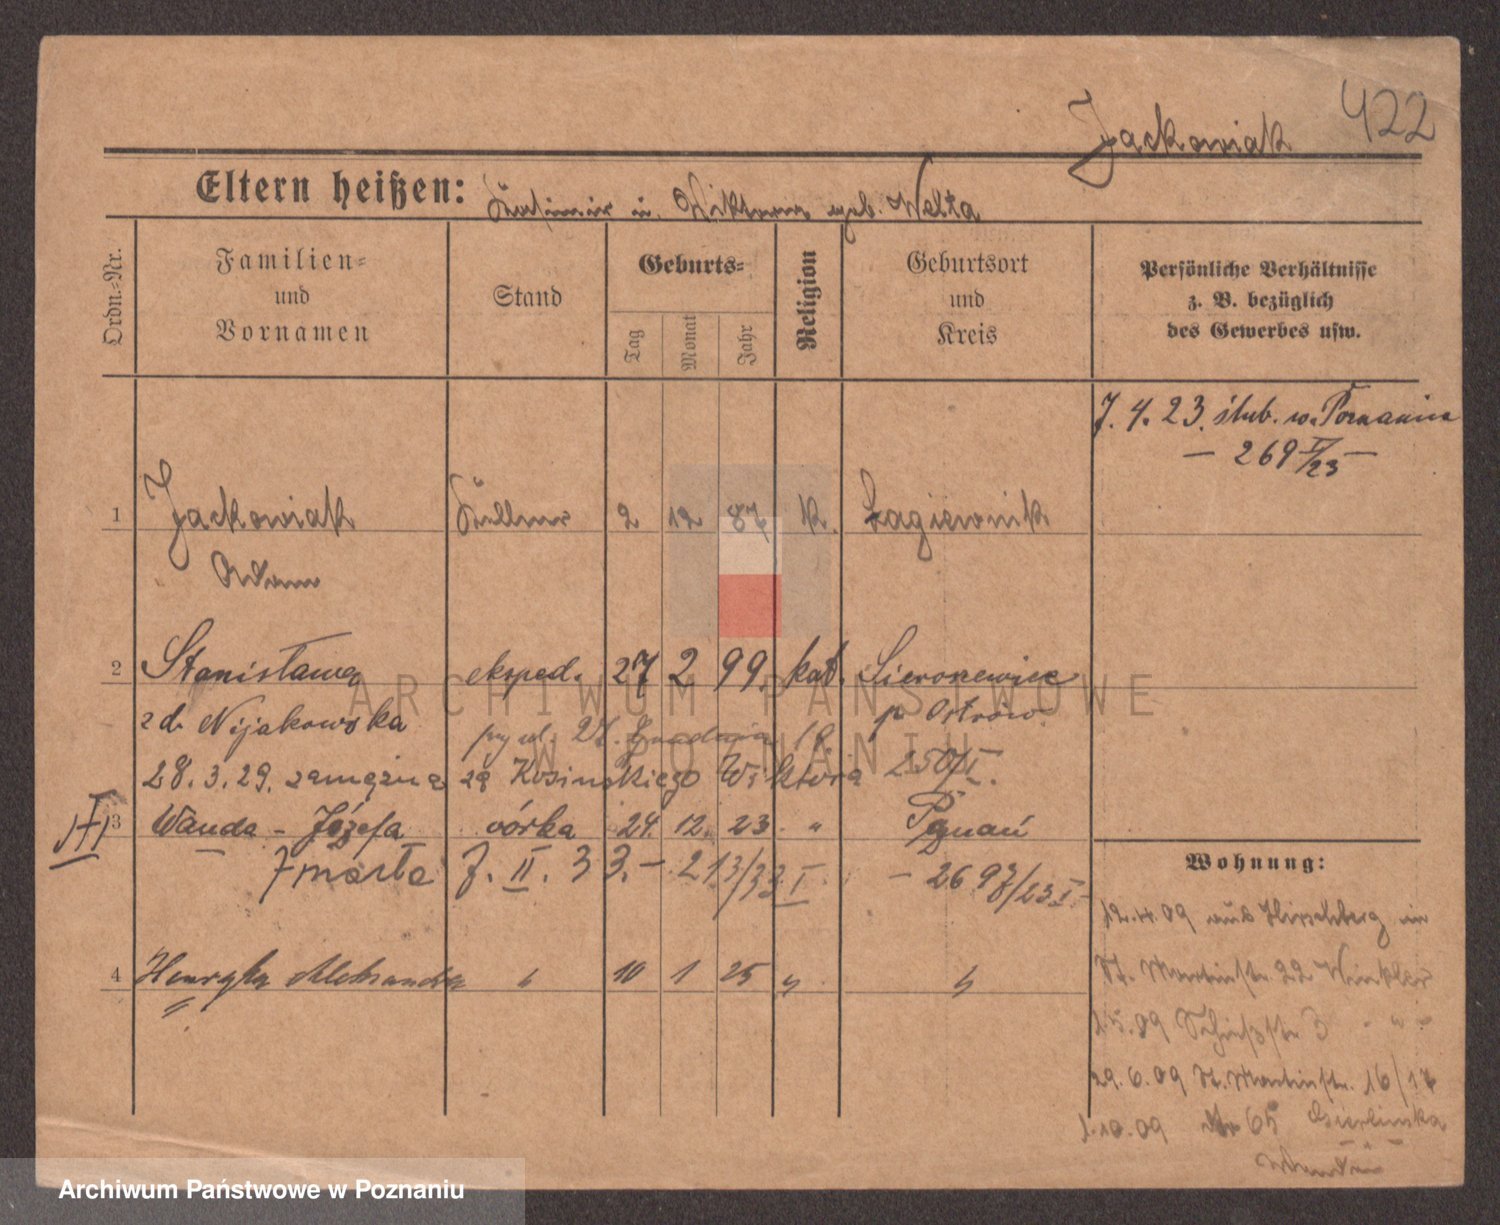 422
Jackowiak
Eltern heißen: Kasimir u. Wiktoria geb. Welza
Ordn.-Nr.
Familien-
und
Vornamen
Stand
Geburts-
Tag
Monat
Jahr
Religion
Geburtsort
und
Kreis
Persönliche Verhältnisse
z. B. bezüglich
des Gewerbes usw.
7. 4. 23. ślub. w. Poznaniu
— 269 I/23 —
1 Jackowiak Kellner 2 12 87 k. Łagiewnik
Adam
2 Stanisława eksped. 27 2 99. kat. Sieroszewice
z d. Nijakowska p. Ostrów.
przy ul. 27. Grudnia 19
28. 3. 29. zamężna za Kosinskiego Wiktora 250/I.
3 Wanda - Józefa córka 24. 12. 23 " Poznań
zmarła 7. II. 33. - 213/33 I - 2697/23 I -
4 Henryka Aleksandra " 10 1 25 " "
Wohnung:
12.4.09 aus Hirschberg in
St. Martinstr. 22 Winkler
1.5.09 Schießstr 3 - " -
29.6.09 St. Martinstr. 16/17
1.10.09 65
ARCHIWUM PAŃSTWOWE
W POZNANIU
Archiwum Państwowe w Poznaniu